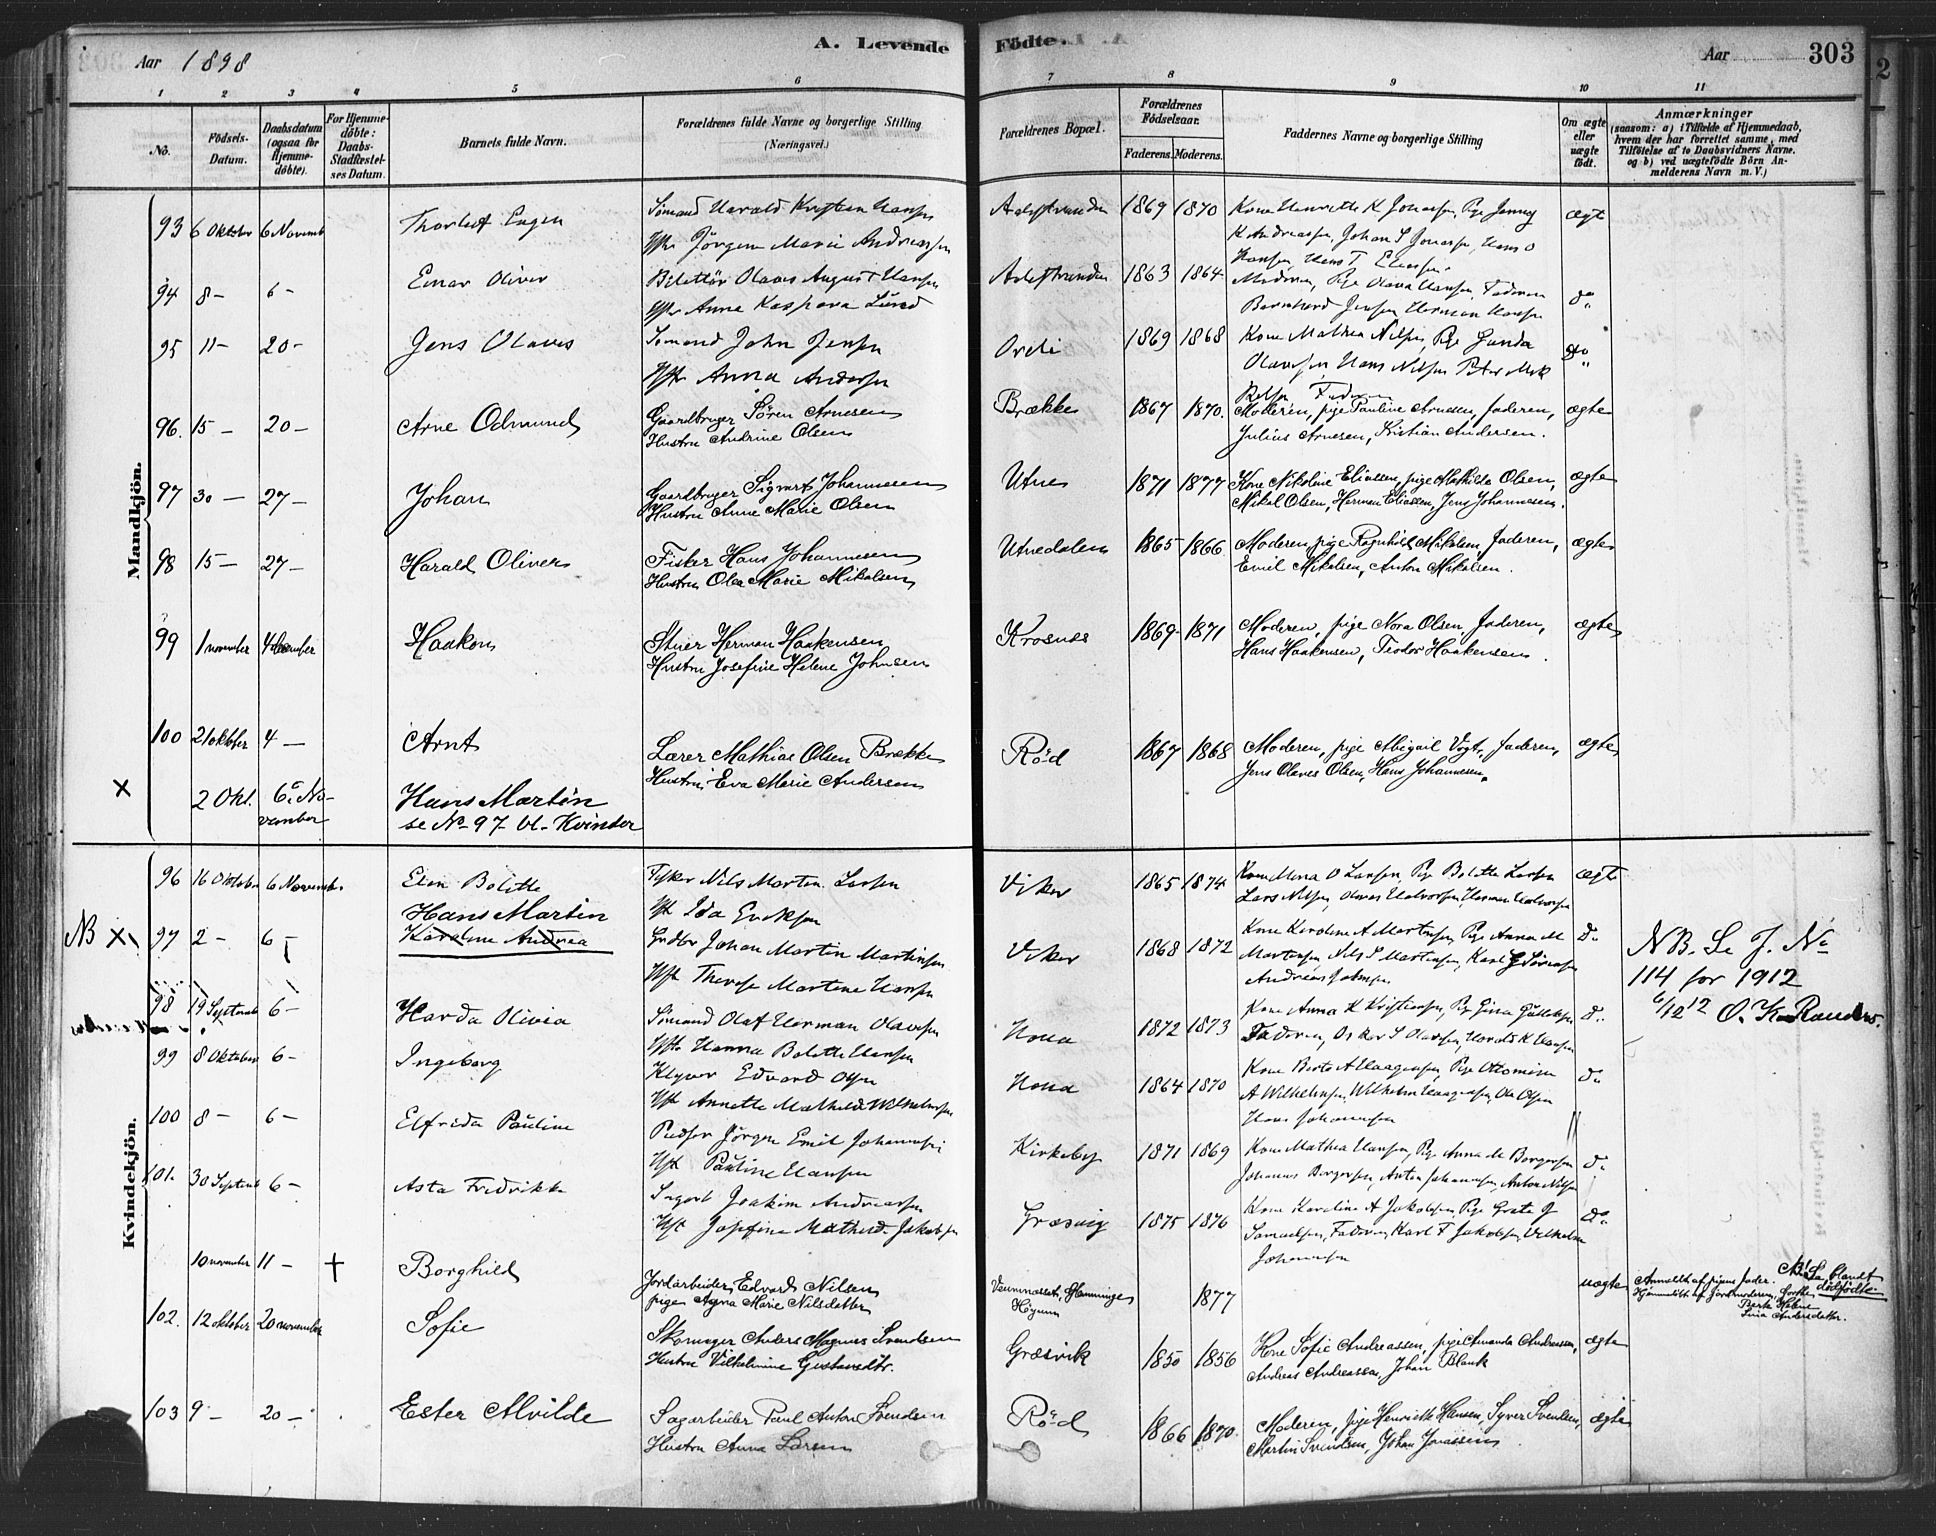 A. Levende
Födte.
303
Aar 1898
Aar
1 2 3 4 5 6 7 8 9 10 11
No.
Födsels-
Datum.
Daabsdatum
(ogsaa for
Hjemme-
døbte).
For Hjemme-
døbte:
Daabs-
Stadfæstel-
ses Datum.
Barnets fulde Navn.
Forældrenes fulde Navne og borgerlige Stilling
(Næringsvei.)
Forældrenes Bopæl.
Forældrenes
Födselsaar.
Faderens. Moderens.
Faddernes Navne og borgerlige Stilling
Om ægte
eller
uægte
født.
Anmærkninger
(saasom: a) i Tilfælde af Hjemmedaab,
hvem der har forrettet samme, med
Tilföielse af to Daabsvidners Navne,
og b) ved uægtefödte Börn An-
melderens Navn m. V.)
Mandkjön.
93 6 Oktober 6 Novemb
Thorleif Eugen
Sömand Harald Kristian Hansen
Hst Jörgine Marie Andreassen
1869 1870
Kone Henriette K Jonassen, Pige Jenny
K Andreassen, Johan S Jonassen, Hans O
Hansen, Hans T Eliassen.
ægt
94 8 - 6 -
Einar Oliver
Olaves August Hansen
Hst Anne Kaspara Lund
1863 1864
Moderen, Pige Olava Hansen, Faderen
Bernhard Jensen Herman Hansen
do
95 11 - 20 -
Jens Olaves
Sömand John Jensen
Hst Anna Andersen
Ordi
1869 1868
Kone Mathea Nilsen, Pige Gunda
Olavesen, Hans Nilsen Peter
Faderen
do
96. 15 - 20 -
Arne Odmund
Gaardbruger Sören Arnesen
Hustru Andrine Olsen
Brække
1867 1870.
Moderen, pige Pauline Arnesen, faderen,
Julius Arnesen, Kristian Andersen.
ægte
97 30 - 27 -
Johan
Gaardbruger Sigvart Johannesen
Hustru Anne Marie Olsen
Utnes
1871 1877
Kone Nikoline Eliassen, pige Mathilda Olsen,
Mikal Olsen, Herman Eliassen, Jens Johannesen.
ægte
98 15 - 27 -
Harald Oliver
Fisker Hans Johannesen
Hustru Olea Marie Mikalsen
Utnedalen
1865 1866
Moderen, pige Ragnhild Mikalsen, faderen,
Emil Mikalsen, Anton Mikalsen.
ægte
99 1 november 4 december
Haakon
Stuer Herman Haakensen
Hustru Josefine Helene Johnsen
Krosnes
1869 1871
Moderen, pige Nora Olsen, faderen,
Hans Haakensen, Teodor Haakensen.
ægte
100 21 oktober 4 -
Arnt
Lærer Mathias Olsen Brække
Hustru Eva Marie Andersen
Röd
1867 1868
Moderen, pige Abigail Vogt, faderen,
Jens Olaves Olsen, Hans Johannesen.
ægte
X 2 Okt. 6 No-
vember
Hans Martin
se No 97 bl. Kvinder
Kvindekjön.
96 16 Oktober 6 November
Elen Bolette
Fisker Nils Martin Larsen
Hst Ida Eriksen
Viker
1865 1874
Kone Mina O Larsen, Pige Bolette Larsen
Lars Nilsen, Olaves Halvorsen, Herman Halvorsen
ægte
NB X 97 2 - 6 -
Hans Martin
Karoline Andrea
Grdbr Johan Martin Martinsen
Hst Therese Martine Hansen
Viker
1868 1872
Kone Karoline A Martinsen, Pige Anna M
Martinsen Nils S Martinsen, Karl G Sörensen
Andreas Johnsen
do
NB. Se J. No
114 for 1912
6/12 12 O. K. Randers.
98 19 Septemb 6 -
Harda Olivia
Sömand Olaf Herman Olavesen
Hst Hanna Bolette Hansen
Hona
1872 1873
Kone Anna K Kristiansen, Pige Gina
Faderen, Oskar S Olavesen, Harald K Hansen
do
99 8 Oktober 6 -
Ingeborg
Klyver Edvard Olsen
Hst Annette Mathilde Wilhelmsen
Hona
1864 1870
Kone Berte A Haagensen, Pige Ottomine
A Wilhelmsen, Wilhelm Haagensen, Ole Olsen
Hans Johannesen
do
100 8 - 6 -
Elfrida Pauline
Pudser Jörgen Emil Johannesen
Hst Pauline Hansen
Kirkeby
1871 1869
Kone Mathea Hansen, Pige Anna M Borgersen
Johannes Borgersen, Anton Johannesen, Anton Nilsen
do
101. 30 Septemb 6 -
Asta Fredrikke
Joakim Andreassen
Hst Josefine Mathilde Jakobsen
Græsvig
1875 1876
Kone Karoline A Jakobsen, Pige Grete J
Samuelsen, Faderen, Karl F Jakobsen, Vilhelm
Johannesen
do
10 november 11 - +
Borghild
Jordarbeider Edvard Nilsen
pige Agna Marie Nilsdatter
1877
uægte
Anmeldt af pigens fader. NB Se blandt
dödfödte
102. 12 oktober 20 november
Sofie
Skomager Anders Magnus Svendsen
Hustru Vilhelmine Gustavsdtr.
Græsvik
1850 1856
Kone Sofie Andreassen, pige Amanda Andreassen,
Andreas Andreassen, Johan Blank
ægte
103 9 - 20 -
Ester Alvilde
Sagarbeider Paul Anton Svendsen
Hustru Anna Larsen
Röd
1866 1870.
Moderen, pige Henriette Hansen, Syver Svendsen,
Martin Svendsen, Johan Jonassen.
ægte